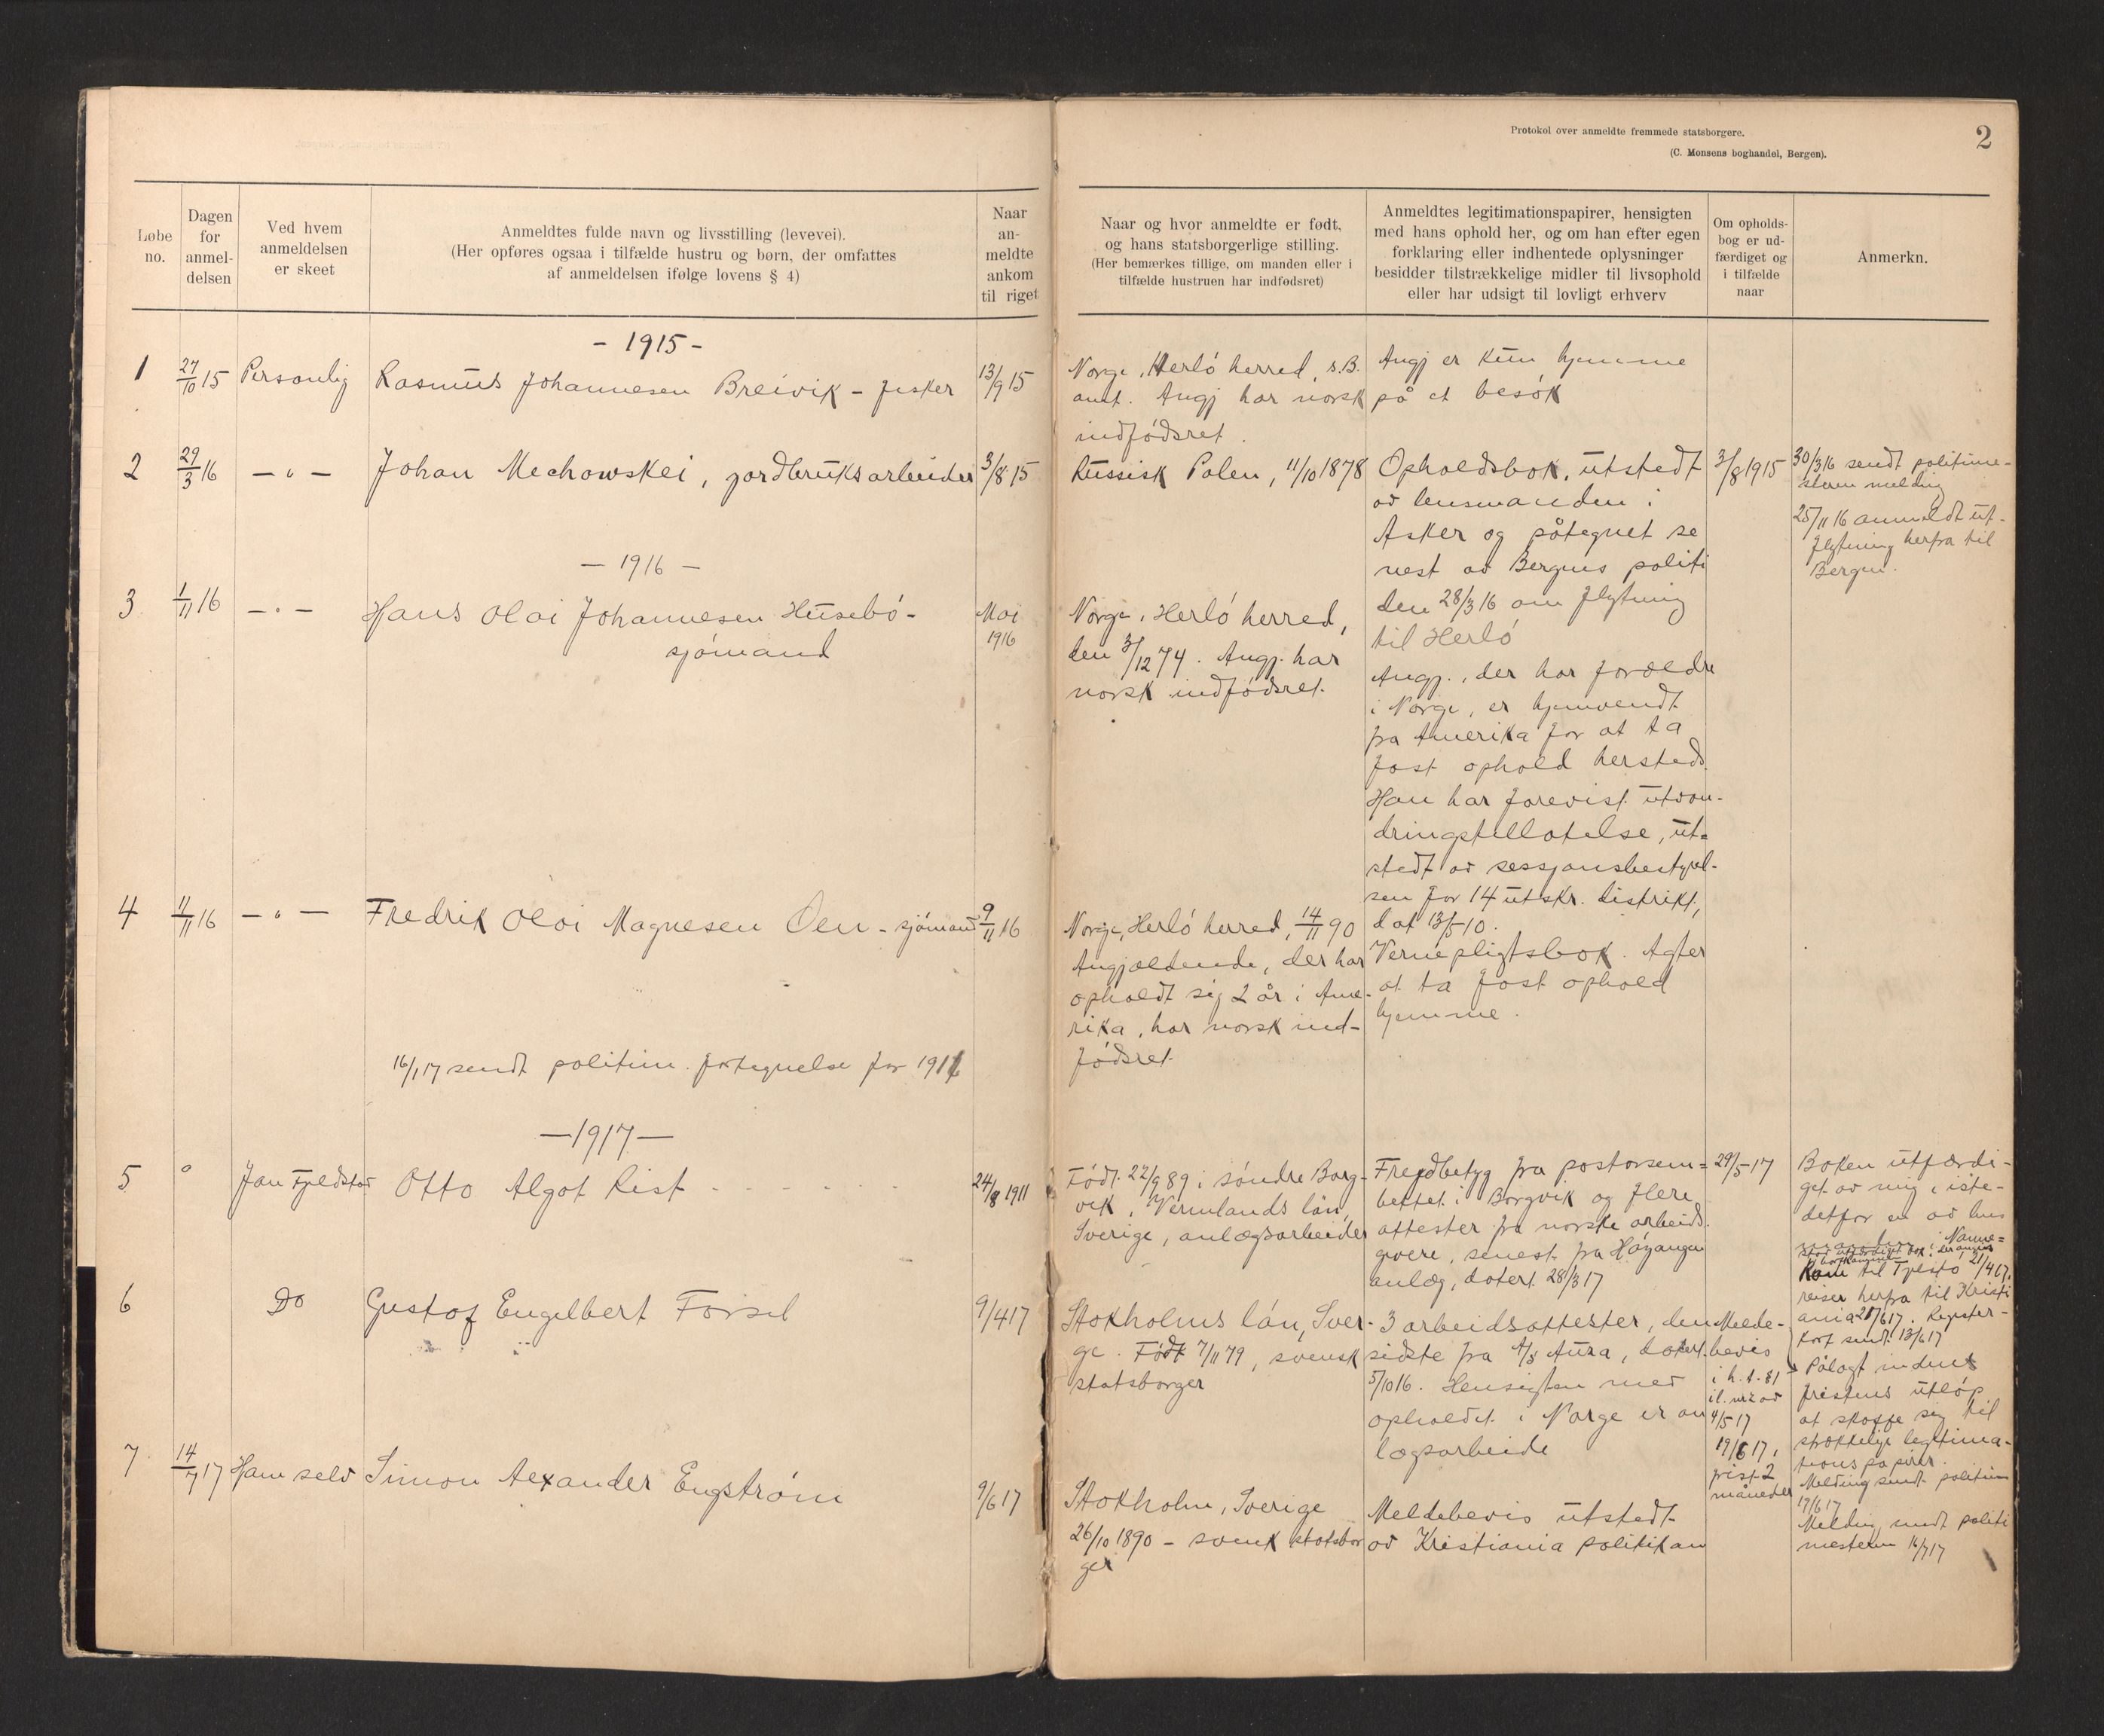 Protokol over anmeldte fremmede statsborgere.
(C. Monsens boghandel, Bergen).
2
Løbe no.
Dagen for anmel- delsen
Ved hvem anmeldelsen er skeet
Anmeldtes fulde navn og livsstilling (levevei).
(Her opføres ogsaa i tilfælde hustru og børn, der omfattes
af anmeldelsen ifølge lovens § 4)
Naar an- meldte ankom til riget
Naar og hvor anmeldte er født,
og hans statsborgerlige stilling.
(Her bemærkes tillige, om manden eller i
tilfælde hustruen har indfødsret)
Anmeldtes legitimationspapirer, hensigten
med hans ophold her, og om han efter egen
forklaring eller indhentede oplysninger
besidder tilstrækkelige midler til livsophold
eller har udsigt til lovligt erhverv
Om opholds-
bog er ud-
færdiget og
i tilfælde
naar
Anmerkn.
- 1915 -
1
27/10 15
Personlig
Rasmus Johannesen Breivik - fisker
13/9 15
Norge, Herló herred, s.B.
amt. Angj har norsk
indfódsret.
Angj er kun hjemme
på et besók
2
29/3 16
- " -
Johan Mechowskei, jordbruksarbeider
3/8 15
Russisk Polen, 11/10 1878
Opholdsbok, utstedt
av lensmanden i
Asker og påtegnet se
nest av Bergens politi
den 28/3 16 om flytning
til Herló
3/8 1915
30/3 16 sendt politime-
steren melding
25/11 16 anmeldt ut-
flytning herfra til
Bergen.
- 1916 -
3
1/11 16
- " -
Hans Olai Johannesen Husebó -
sjómand
Mai
1916
Norge, Herló herred,
den 3/12 74. Angj. har
norsk indfódsret.
Angj., der har foreldre
i Norge, er hjemvendt
fra Amerika for at ta
fast ophold hersteds.
Han har forevist utvan-
dringstillatelse, ut-
stedt av sessjonsbestyrel-
sen for 14 utskr. distrikt,
dat 13/5 10.
4
11/11 16
- " -
Fredrik Olai Magnesen Oen - sjómand
9/11 16
Norge, Herló herred, 14/11 90
Angjældende, der har
opholdt sig 2 år i Ame-
rika, har norsk ind-
fódsret
Vernepligtsbok. Agter
at ta fast ophold
hjemme.
16/1 17 sendt politim. fortegnelse for 1916
- 1917 -
5
"
Otto Algot Rist
24/8 1911
Fódt 22/9 89 i sóndre Borg-
vik, Vermlands län,
Sverige, anlægsarbeider
Frejdbetyg fra pastorsem-
bettet i Borgvik og flere
attester fra norske arbeids
givere, senest fra Hóyanger
anlæg, datert 28/3 17
29/5 17
Boken utfærdi-
get av mig i iste-
detfor en av lens
til 21/4 67,
reiser herfra til Kristi
ania 28/6 17. Register-
kort sendt 13/6 17
6
Do
Gustof Engelbert Forsel
9/4 17
Stokholms län, Sver-
ge. Fódt 7/11 79, svensk
statsborger
3 arbeidsattester, den
sidste fra A/S Aura, datert
5/10 16. Hensigten med
opholdet i Norge er an
lægsarbeide
Melde-
bevis
4/5 17
19/6 17,
frist 2
måneder
Pålagt inden
fristens utlóp
at skaffe sig til
strækkelige legitima-
tionspapirer.
Melding sendt politim
19/6 17
7
14/7 17
Ham selv
Simon Alexander Engstróm
9/6 17
Stokholm, Sverige
26/10 1890 - svensk statsbor
ger
Meldebevis utstedt
av Kristiania politikam
Melding sendt politi
mesteren 16/7 17